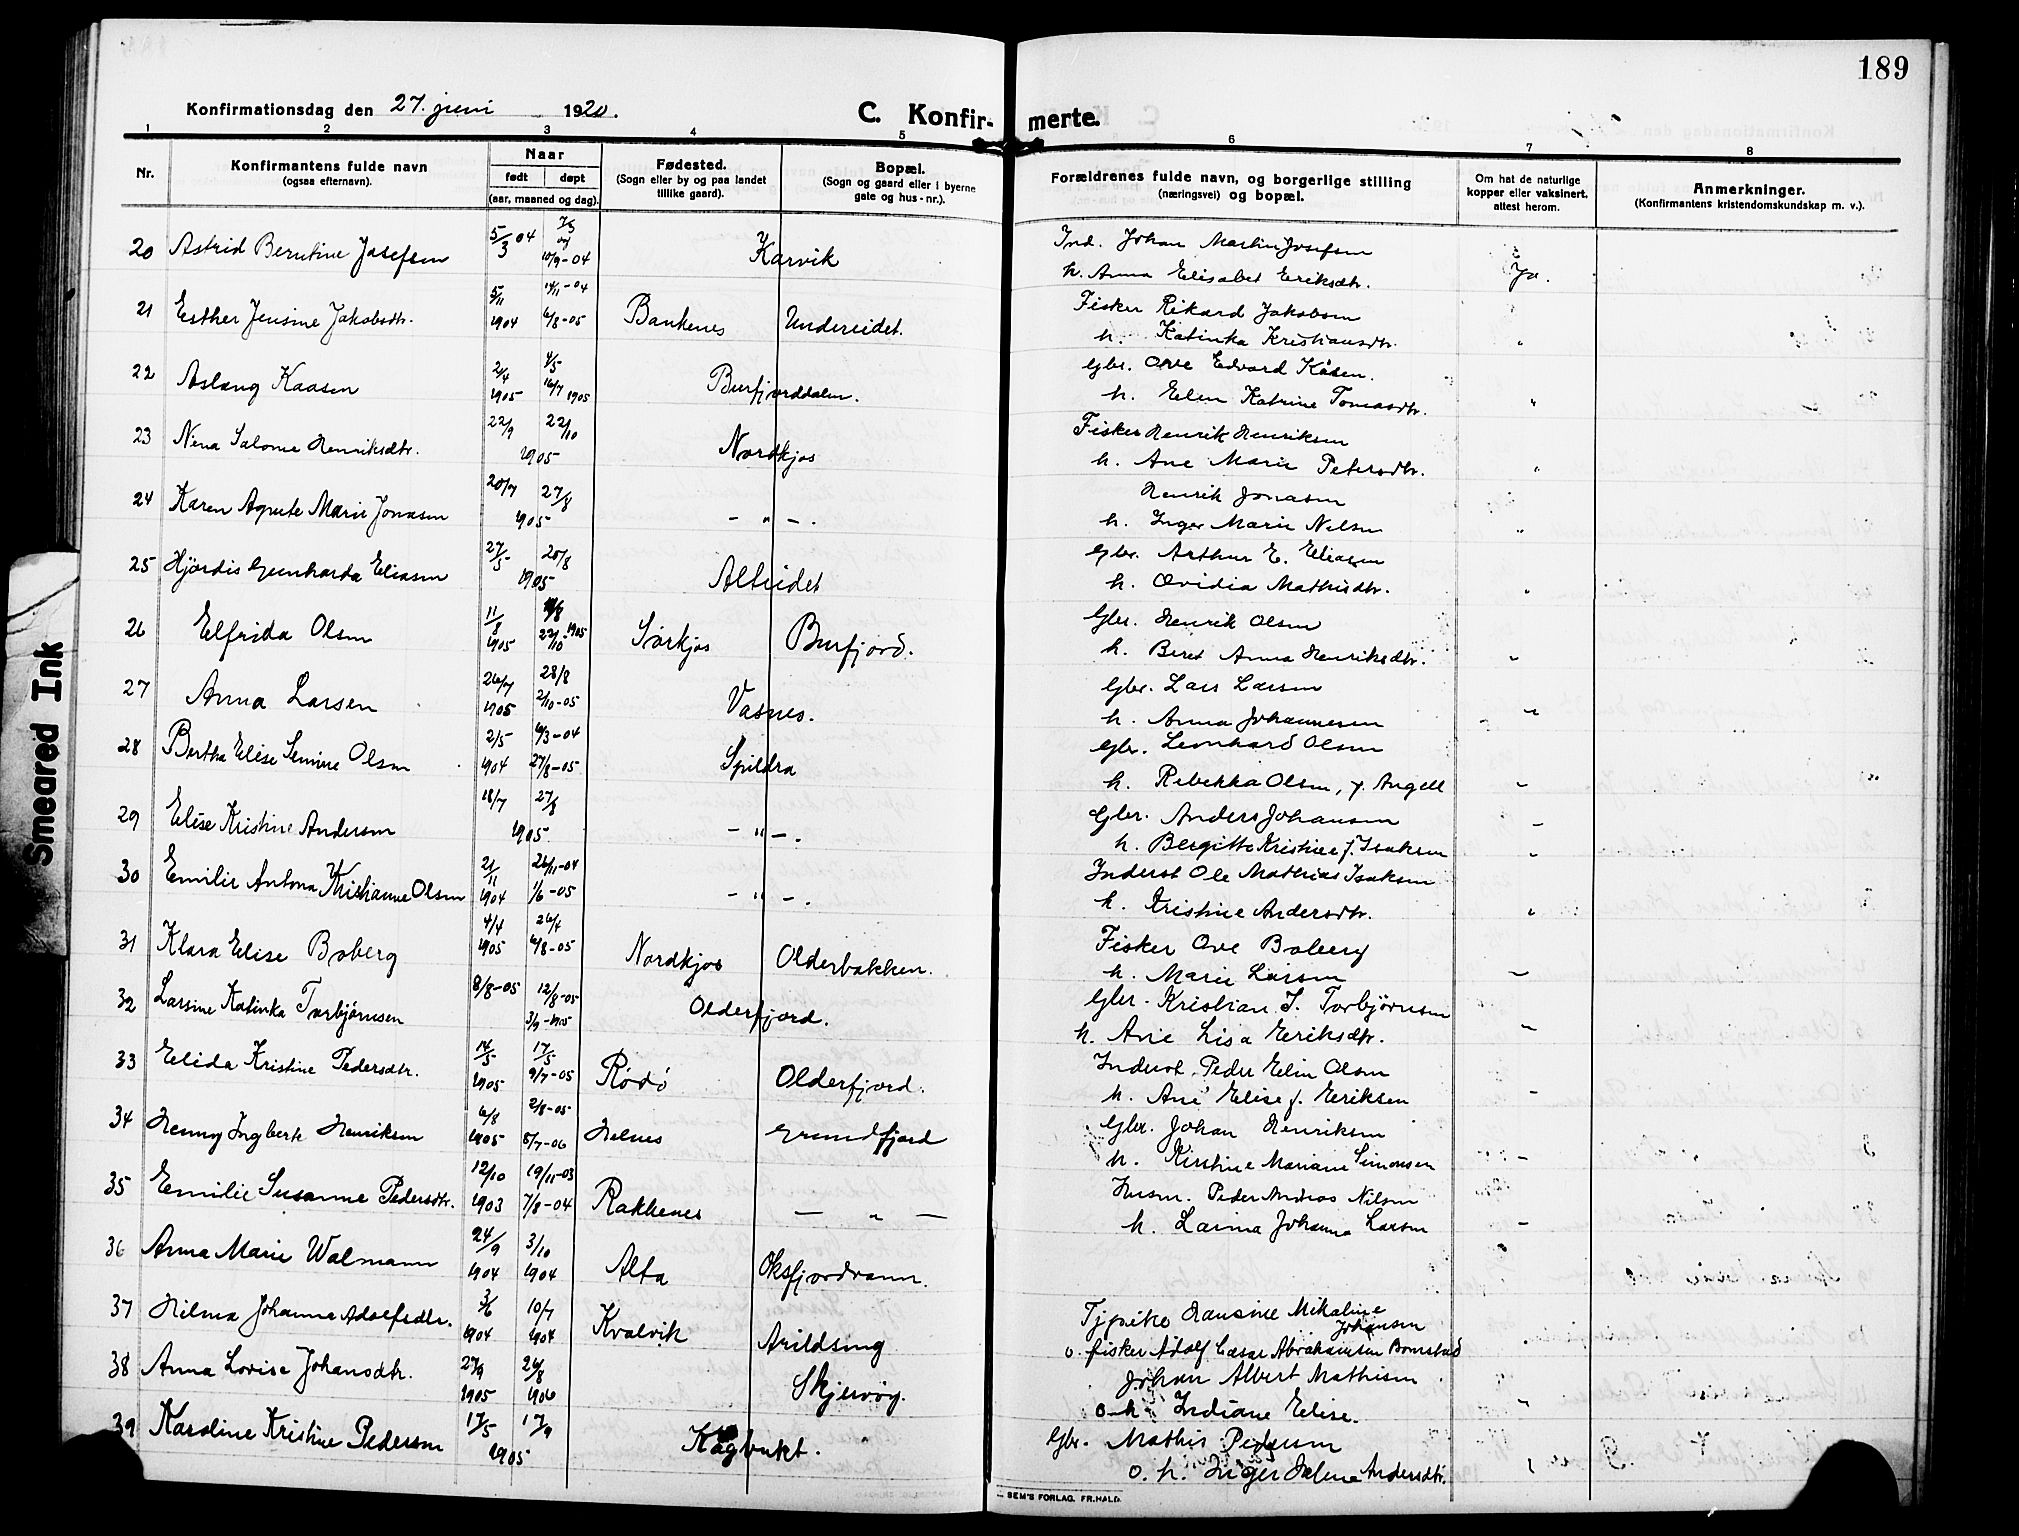 189
Konfirmationsdag den 27. juni 1920.
C. Konfirmerte.
1 2 3 4 5 6 7 8
Nr.
Konfirmantens fulde navn
(ogsaa efternavn).
Naar
født døpt
(aar, maaned og dag).
Fødested.
(Sogn eller by og paa landet
tillike gaard).
Bopæl.
(Sogn og gaard eller i byerne
gate og hus-nr.).
Forældrenes fulde navn, og borgerlige stilling
(næringsvei) og bopæl.
Om hat de naturlige
kopper eller vaksinert.
attest herom.
Anmerkninger.
(Konfirmantens kristendomskundskap m. v.).
20 Astrid Berntine Josefsen 5/3 04 7/3 og 10/9-04 Karvik Ind. Johan Martin Josefsen
h. Anna Elisabet Eriksdtr. Ja.
21 Esther Jensine Jakobsdtr. 5/11 1904 14/11-04 6/8-05 Bankenes Undereidet. Fisker Rikard Jakobsen
h. Katinka Kristiansdtr. "
22 Aslaug Kaasen 2/4 1905 4/5 16/7 1905 Burfjorddalen. Gbr. Ove Edvard Kåsen.
h. Elen Katrine Tomasdtr. "
23 Nena Salome Henriksdtr. 22/9 22/10 1905 Nordkjos Fisker Henrik Henriksen
h. Ane Marie Petersdtr. "
24 Karen Agnete Marie Jonasen 20/7 27/8 1905 - " - . Henrik Jonasen
h. Inger Marie Nilsen "
25 Hjørdis Gunharda Eliasen 27/5 20/8 1905 Alteidet Gbr. Arthur E. Eliasen
h. Ovidia Mathisdtr. "
26 Elfrida Olsen 11/8 1905 22/10 1905 Sørkjos Burfjord. Gbr. Henrik Olsen
h. Beret Anna Henriksdtr. "
27 Anna Larsen 26/7 1905 28/8 2/10-05 Vasnes. Gbr. Lars Larsen
h. Anna Johannesen "
28 Bertha Elise Semine Olsen 2/5 1904 27/8-05 Spildra Gbr. Leonhard Olsen
h. Rebekka Olsen, f. Angell "
29 Elise Kristine Andersen 18/7 27/8 1905 - " - . Gbr. Anders Johansen
h. Bergitte Kristine f. Isaksen "
30 Emilie Antona Kristianne Olsen 21/11 1904 26/11-04 1/6-05 - " - . Inderst Ole Mathias Isaksen
h. Kristine Andersdtr. "
31 Klara Elise Boberg 4/4 1905 26/4 6/8-05 Nordkjos Olderbakken. Fisker Ove Boberg
h. Marie Larsen "
32 Larsine Katinka Torbjørnsen 8/8-05 12/8-05 3/9-1905 Olderfjord. Gbr. Kristian J. Torbjørnsen
h. Ane Lisa Eriksdtr. "
33 Elida Kristine Pedersdtr. 14/5 1905 17/5 9/7-05 Rødø Olderfjord. Inderst Peder Elin Olsen
h. Ane Elise f. Eriksen "
34 Henny Ingberte Henriksen 6/8 1905 2/8-05 8/7-06 Helnes Grundfjord Gbr. Johan Henriksen
h. Kirstine Mariane Simonsen "
35 Emilie Susanne Pedersdtr. 12/10 1903 19/11-03 7/8-04 Rakkenes - " - Husm. Peder Andreas Nilsen
h. Larina Johanna Larsen "
36 Anna Marie Walmann 24/9 1904 3/10 1904 Alta Oksfjordvann.
37 Hilma Johanne Adolfsdtr. 3/6 1904 10/7 1904 Kvalvik Arildseng Tjpike Hansine Mikaline Johansen
o. fisker Adolf Cæsar Abrahamsen Bomstad
38 Anna Lovise Johansdtr. 27/9 1905 26/8 1906 Skjervøy. Johan Albert Mathisen
o. h. Indiane Elise. "
39 Karoline Kristine Pedersen 17/5 17/9 1905 Kågbukt. Gbr. Mathis Pedersen
o. h. Inger Helene Andersdtr. "
SEM'S FORLAG. FR.HALD.
Smeared Ink